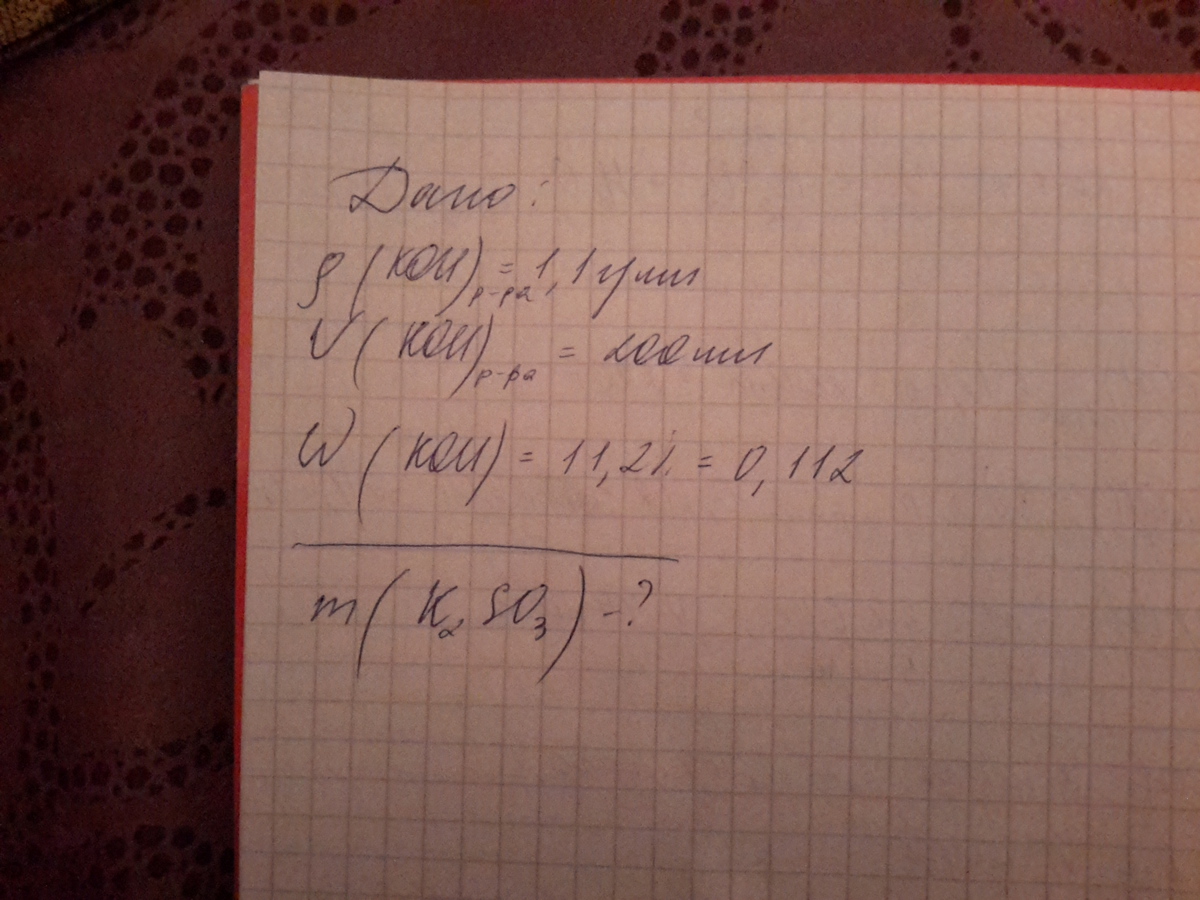 Дано:
ρ (KOH)р-ра = 1,1 г/мл
V (KOH)р-ра = 200 мл
W (KOH) = 11,2% = 0,112
m (K₂SO₃) - ?